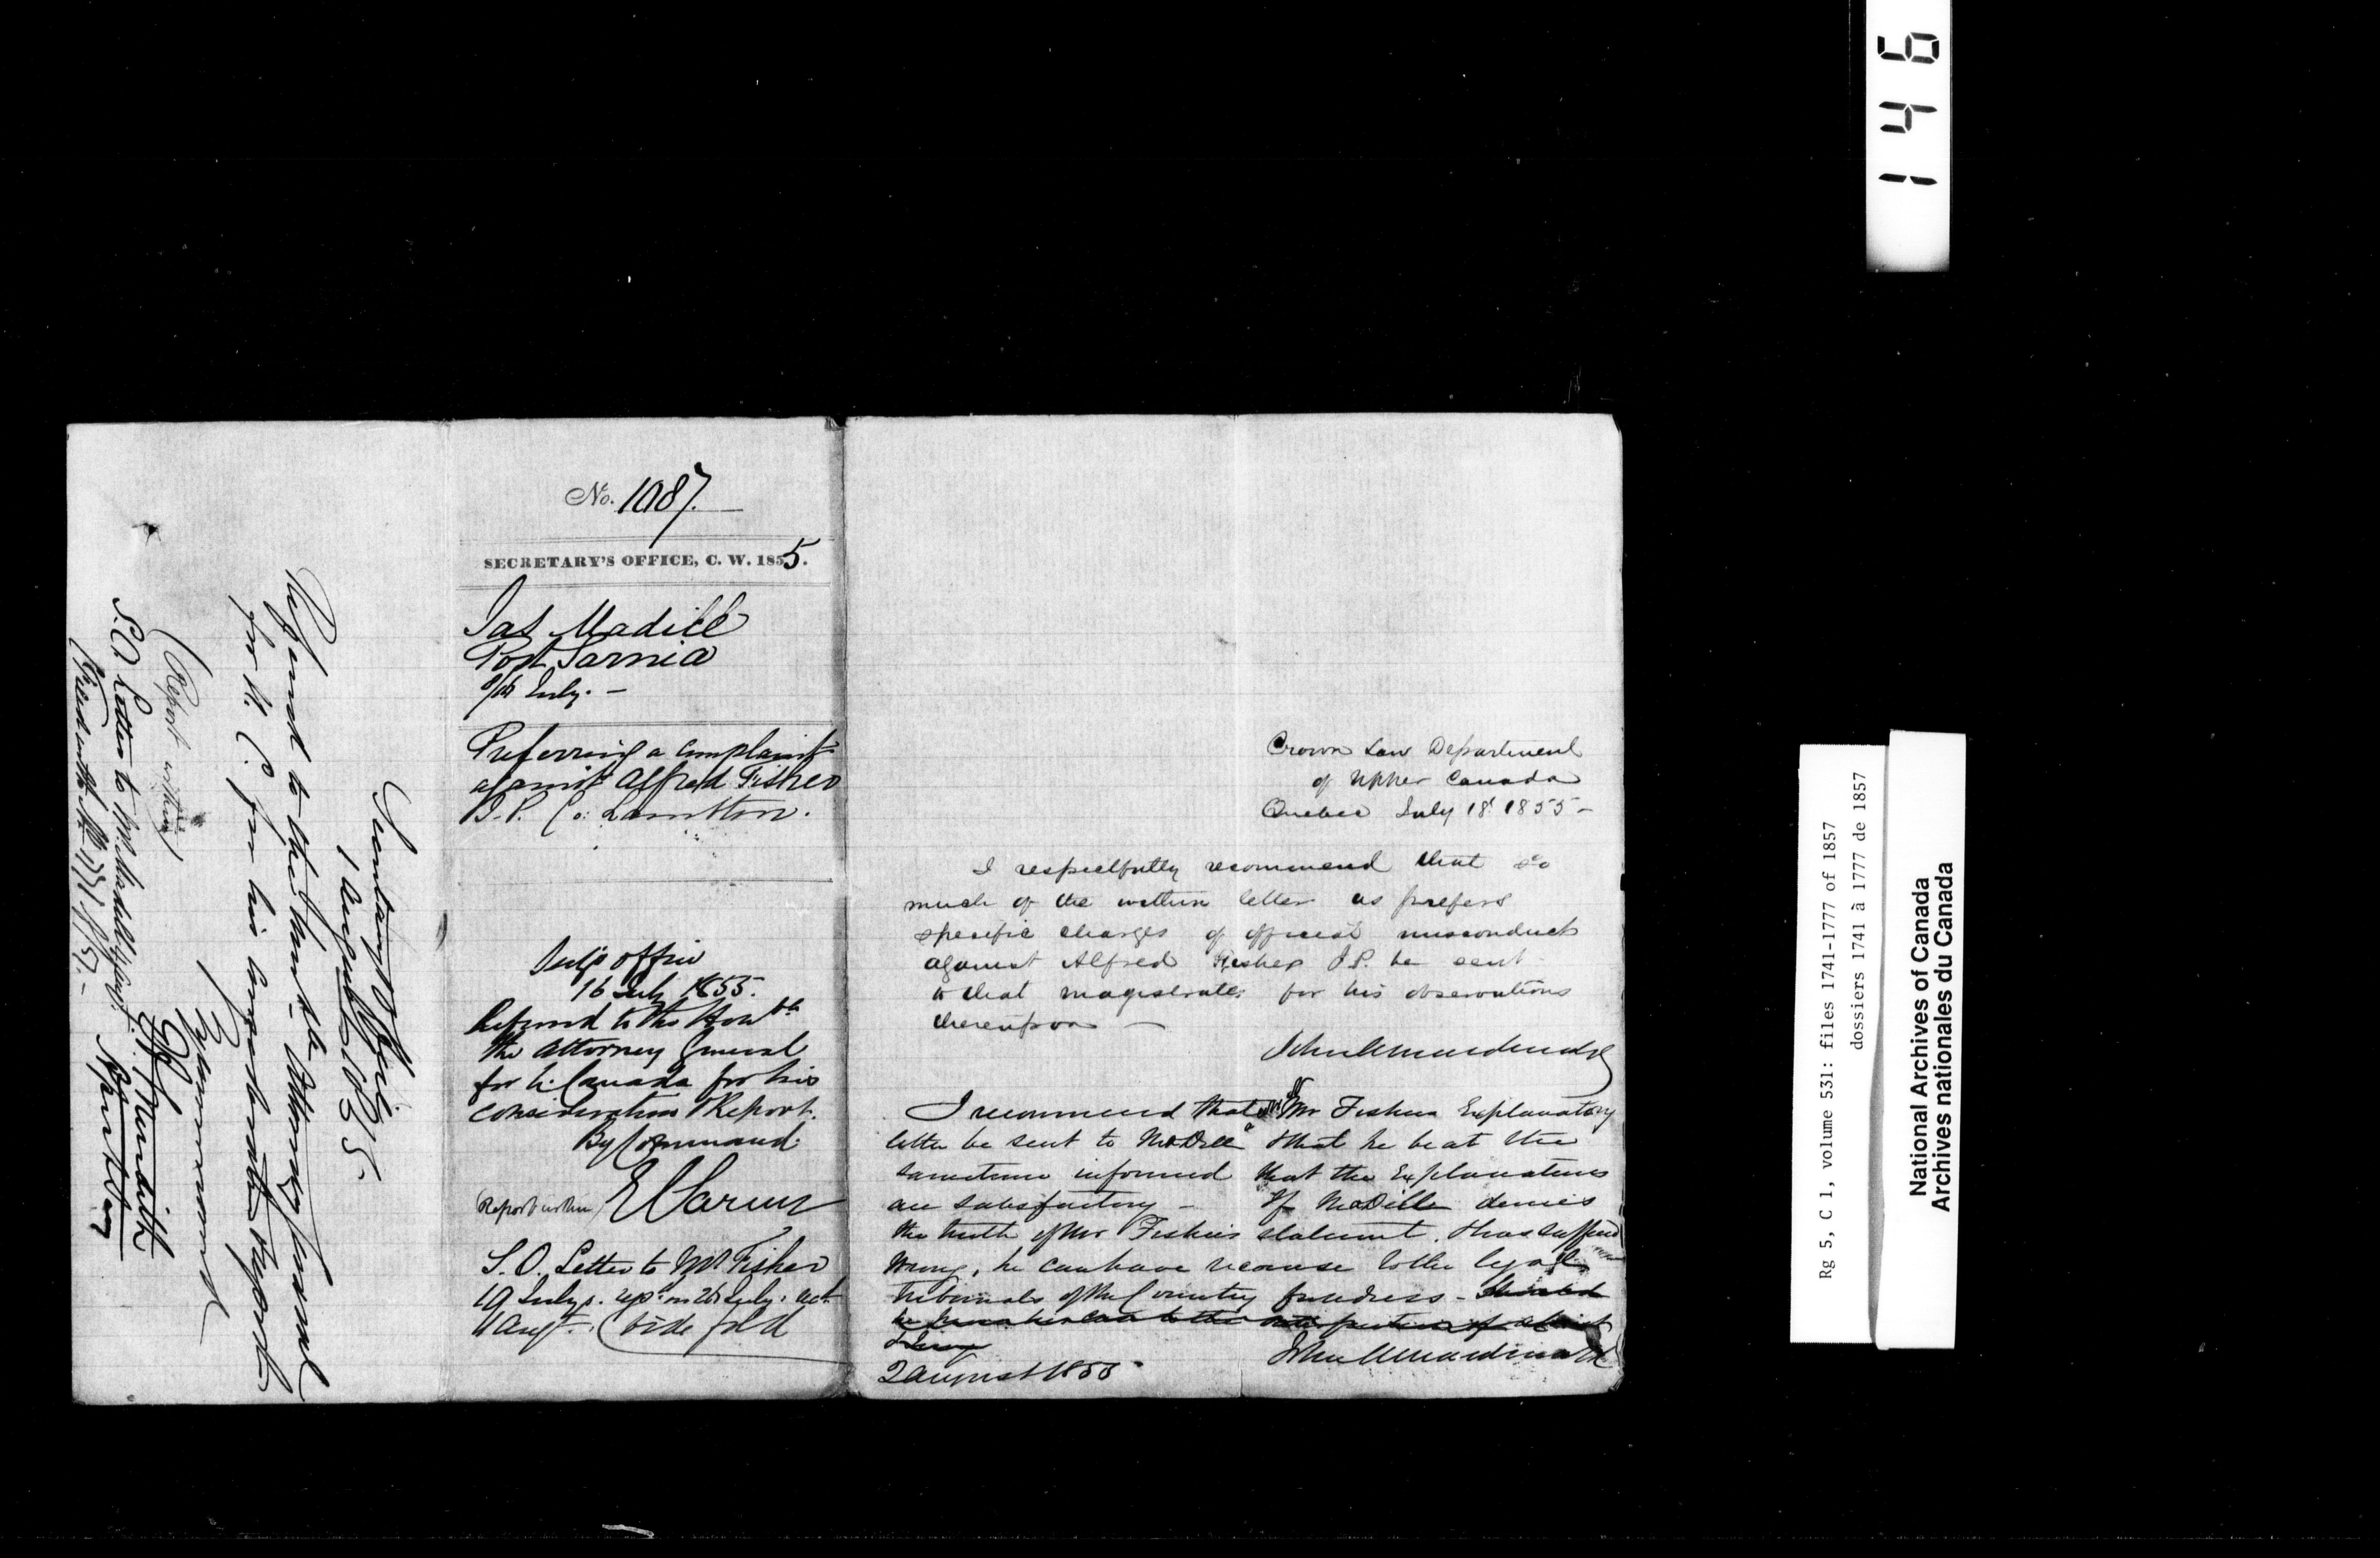 No. 1087.
SECRETARY'S OFFICE, C. W. 1855.
Jas Madill
Port Sarnia
9th July. —
Preferring a complaint
against Alfred Fisher
J.P. Co: Lambton.
Sec's office
16 July 1855.
Referred to the Honble
the Attorney General
for U. Canada for his
consideration & Report.
By Command.
Report within
S. O. Letter to Mr Fisher
19 July.
4 Augt. (vide fold
Secretary's Office
1 August 1855.
Referred to the Honorable Attorney General
for U. C. for his report
By command
E. A. Meredith
(Report within)
S.O. Letter to Mr. Madill
Crown Law Department
of Upper Canada
Quebec July 18t 1855 -
I respectfully recommend that so
much of the within letter as prefers
specific charges of official misconduct
against Alfred Fisher J.P. be sent
to that magistrate for his observations
thereupon —
John A Macdonald
I recommend that Mr Fishers Explanatory
letter be sent to McDill & that he be at the
sametime informed that the Explanations
are satisfactory - If McDill denies
the truth of Mr Fishers statement, & has suffered
wrong, he can have recourse to the legal
tribunals of the Country for redress -
2 August 1855
John A Macdonald
146
Rg 5, C 1, volume 531: files 1741-1777 of 1857
dossiers 1741 à 1777 de 1857
National Archives of Canada
Archives nationales du Canada